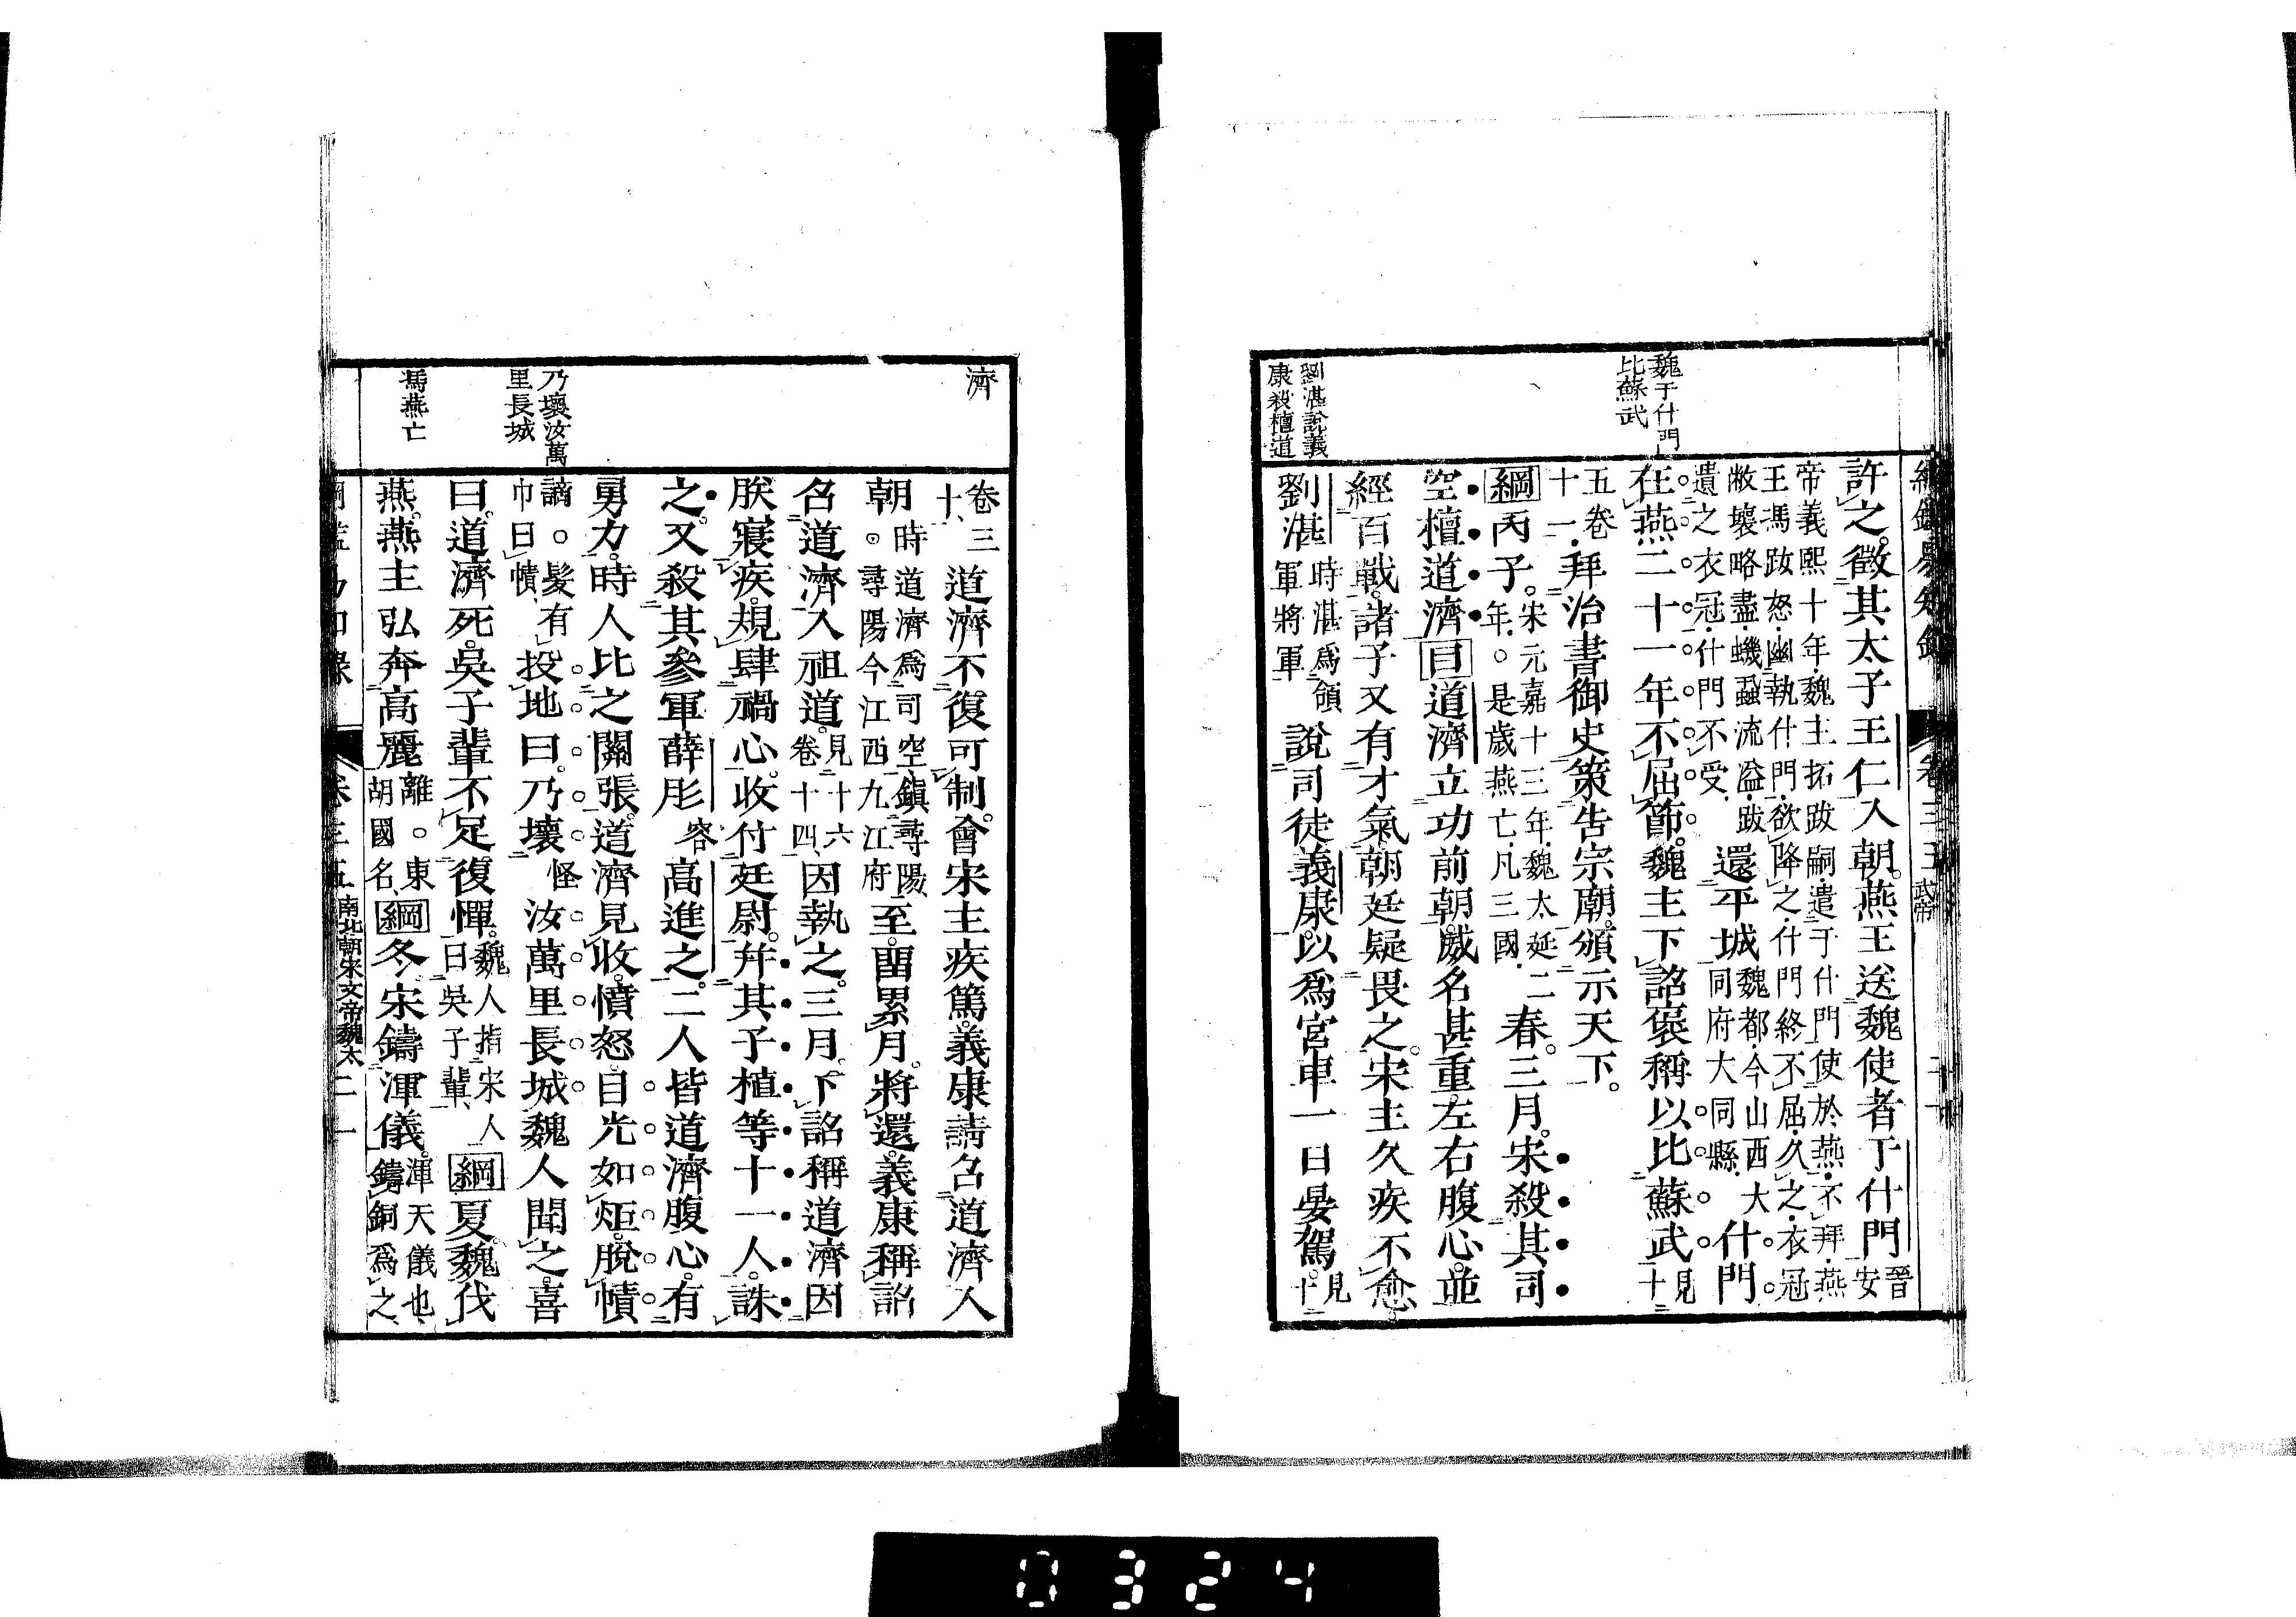 綱鑑易知錄 卷三五 武帝
魏于什門
比蘇武
劉湛說義
康殺檀道
許之。徵其太子王仁入朝。燕王送魏使者于什門晉安
帝義熙十年。魏主拓跋嗣遣于什門使於燕。不拜。燕
王馮跋怒。幽執什門。欲降之。什門終不屈。久之。衣冠
敝壞略盡。蟣蝨流溢。跋
遺之衣冠。什門不受。還平城魏都。今山西大
同府大同縣。什門
在燕二十一年。不屈節。魏主下詔褒稱。以比蘇武。見十
五卷
十一。拜治書御史。策告宗廟。頒示天下。
綱丙子。宋元嘉十三年。魏太延二
年。○是歲燕亡。凡三國。春。三月。宋殺其司
空檀道濟。目道濟立功前朝。威名甚重。左右腹心。並
經百戰。諸子又有才氣。朝廷疑畏之。宋主久疾不愈。
劉湛時湛爲領
軍將軍說司徒義康。以爲宮車一日晏駕。見十
濟
乃壞汝萬
里長城
馮燕亡
卷三
十、道濟不復可制。會宋主疾篤。義康請召道濟入
朝時道濟爲司空鎮尋陽
○尋陽今江西九江府至。留累月。將還。義康稱詔
召道濟入祖道。見十六
卷十四、因執之。三月。下詔稱道濟因
朕寢疾。規肆禍心。收付廷尉。幷其子植等十一人。誅
之。又殺其參軍薛肜容高進之。二人皆道濟腹心。有
勇力。時人比之關張。道濟見收。憤怒。目光如炬。脫幘
謫○髮有
巾曰幘、投地曰。乃壞怪汝萬里長城。魏人聞之。喜
曰。道濟死。吳子輩不足復憚。魏人指宋人
曰吳子輩、綱夏。魏伐
燕。燕主弘奔高麗離○東
胡國名、綱冬。宋鑄渾儀。渾天儀也
鑄銅爲之、
綱鑑易知錄 卷三五 南北朝宋文帝魏太 二一
0324